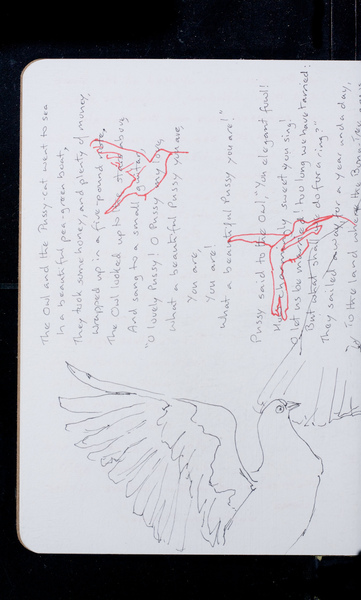 The Owl and the Pussy-cat went to sea
In a beautiful pea-green boat,
They took some honey, and plenty of money,
Wrapped up in a five-pound note,
The Owl looked up to the stars above,
And sang to a small guitar,
"O lovely Pussy! O Pussy my love,
What a beautiful Pussy you are,
You are,
You are!
What a beautiful Pussy you are!"
Pussy said to the Owl, "You elegant fowl!
How charmingly sweet you sing!
O let us be married! too long we have tarried:
But what shall we do for a ring?"
They sailed away, for a year and a day,
To the land where the Bong-Tree